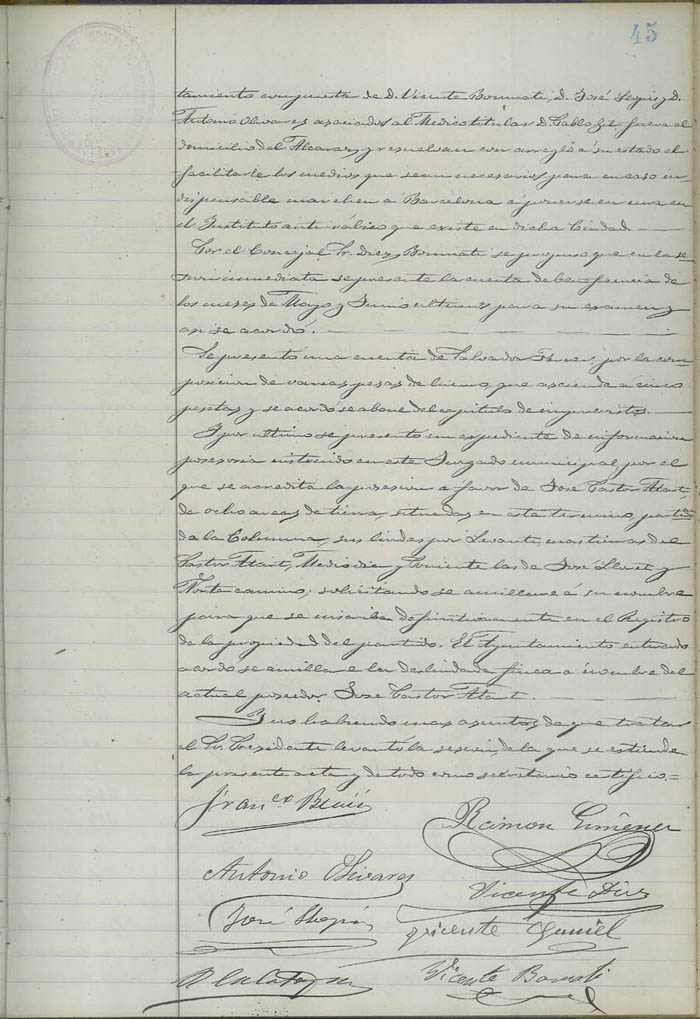 45
tamiento compuesta de D. Vicente Bonmati, D. José Llopis y D.
Antonio Olivares asociados al Medico titular D. Pablo Gil fuera al
domicilio del Alcaraz y resuelvan con arreglo á su estado el
facilitarle los medios que sean necesarios para en caso in-
dispensable marchen á Barcelona á ponerse en cura en
el Instituto anti rábico que existe en dicha Ciudad
Por el Concejal Sr. Diez y Bonmati se propuso que en la se-
sion inmediata se presente la cuenta de beneficencia de
los meses de Mayo y Junio ultimos para su examen y
asi se acordó.
Se presentó una cuenta de Salvador Ferrer, por la com-
posicion de varias pesas de hierro, que asciende á cinco
pesetas y se acordó se abone del capitulo de imprevistos.
Y por ultimo se presentó un espediente de informacion
posesoria instruido en este Juzgado municipal, por el
que se acredita la posesion a favor de José Pastor
de ocho areas de tierra, situadas en este termino, partido
de la Columna, sus lindes por Levante, mas tierras del
Pastor, Mediodia y Poniente las de José y
Norte camino; solicitando se amillare á su nombre
para que se inscriba definitivamente en el Registro
de la propiedad del partido. El Ayuntamiento enterado
acordó se amillare la deslindada finca a nombre del
actual poseedor José Pastor
Y no habiendo mas asuntos de que tratar
el Sr. Presidente levantó la sesion, de la que se estiende
la presente acta y de todo como secretario certifico.=
Fran.co
Ramon Gimenez
Antonio Olivares
Vicente Diez
José Llopis
Vicente
Vicente Bonmati